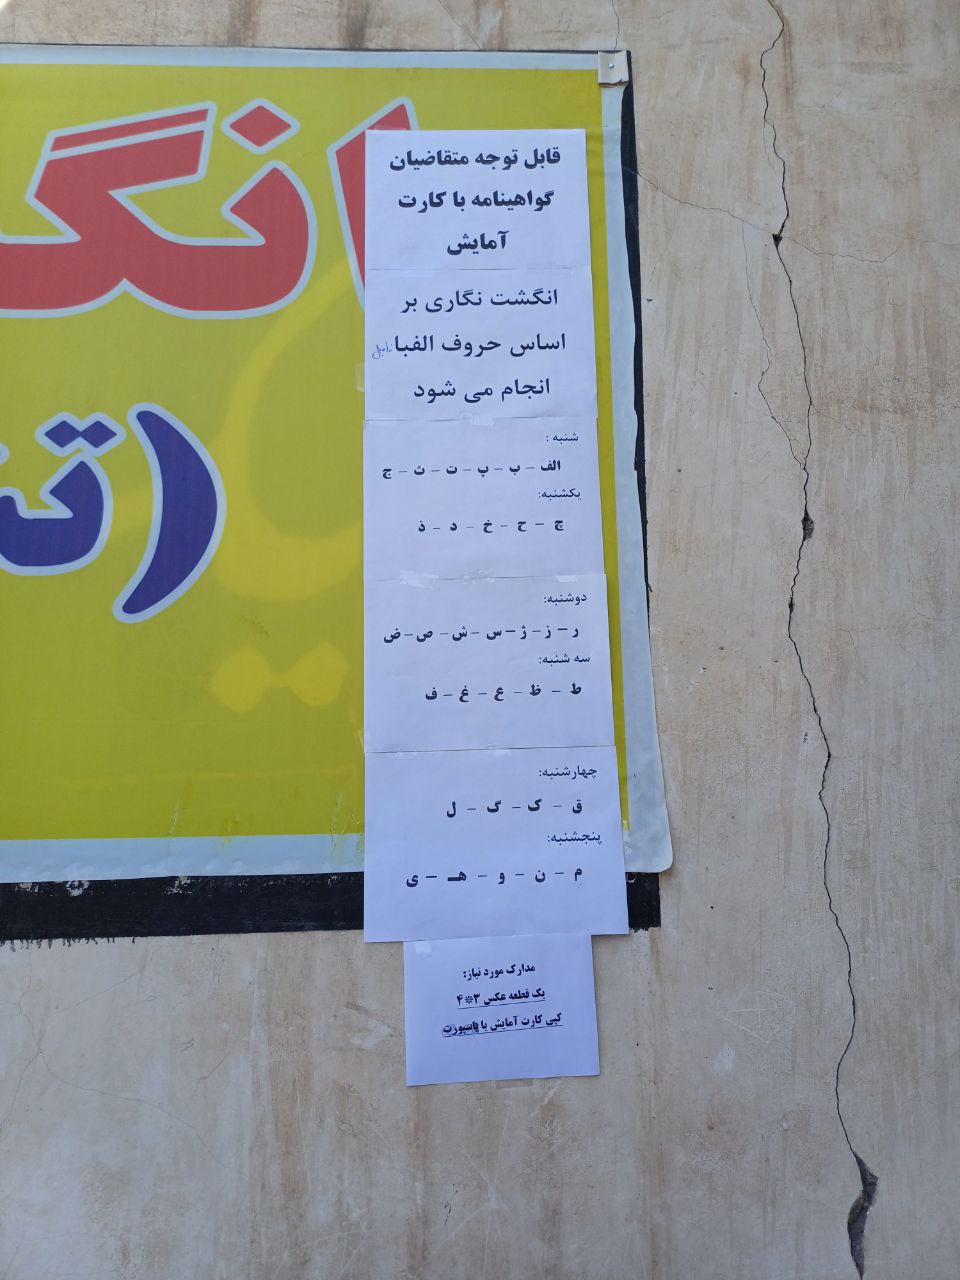 انگ
(ت
قابل توجه متقاضیان
گواهینامه با کارت
آمایش
انگشت نگاری بر
اساس حروف الفبا فامیل
انجام می شود
شنبه :
الف - ب - پ - ت - ث - ج
یکشنبه:
چ - ح - خ - د - ذ
دوشنبه:
ر - ز - ژ - س - ش - ص - ض
سه شنبه:
ط - ظ - ع - غ - ف
چهارشنبه:
ق - ک - گ - ل
پنجشنبه:
م - ن - و - هـ - ی
مدارک مورد نیاز:
یک قطعه عکس ۳*۴
کپی کارت آمایش یا پاسپورت